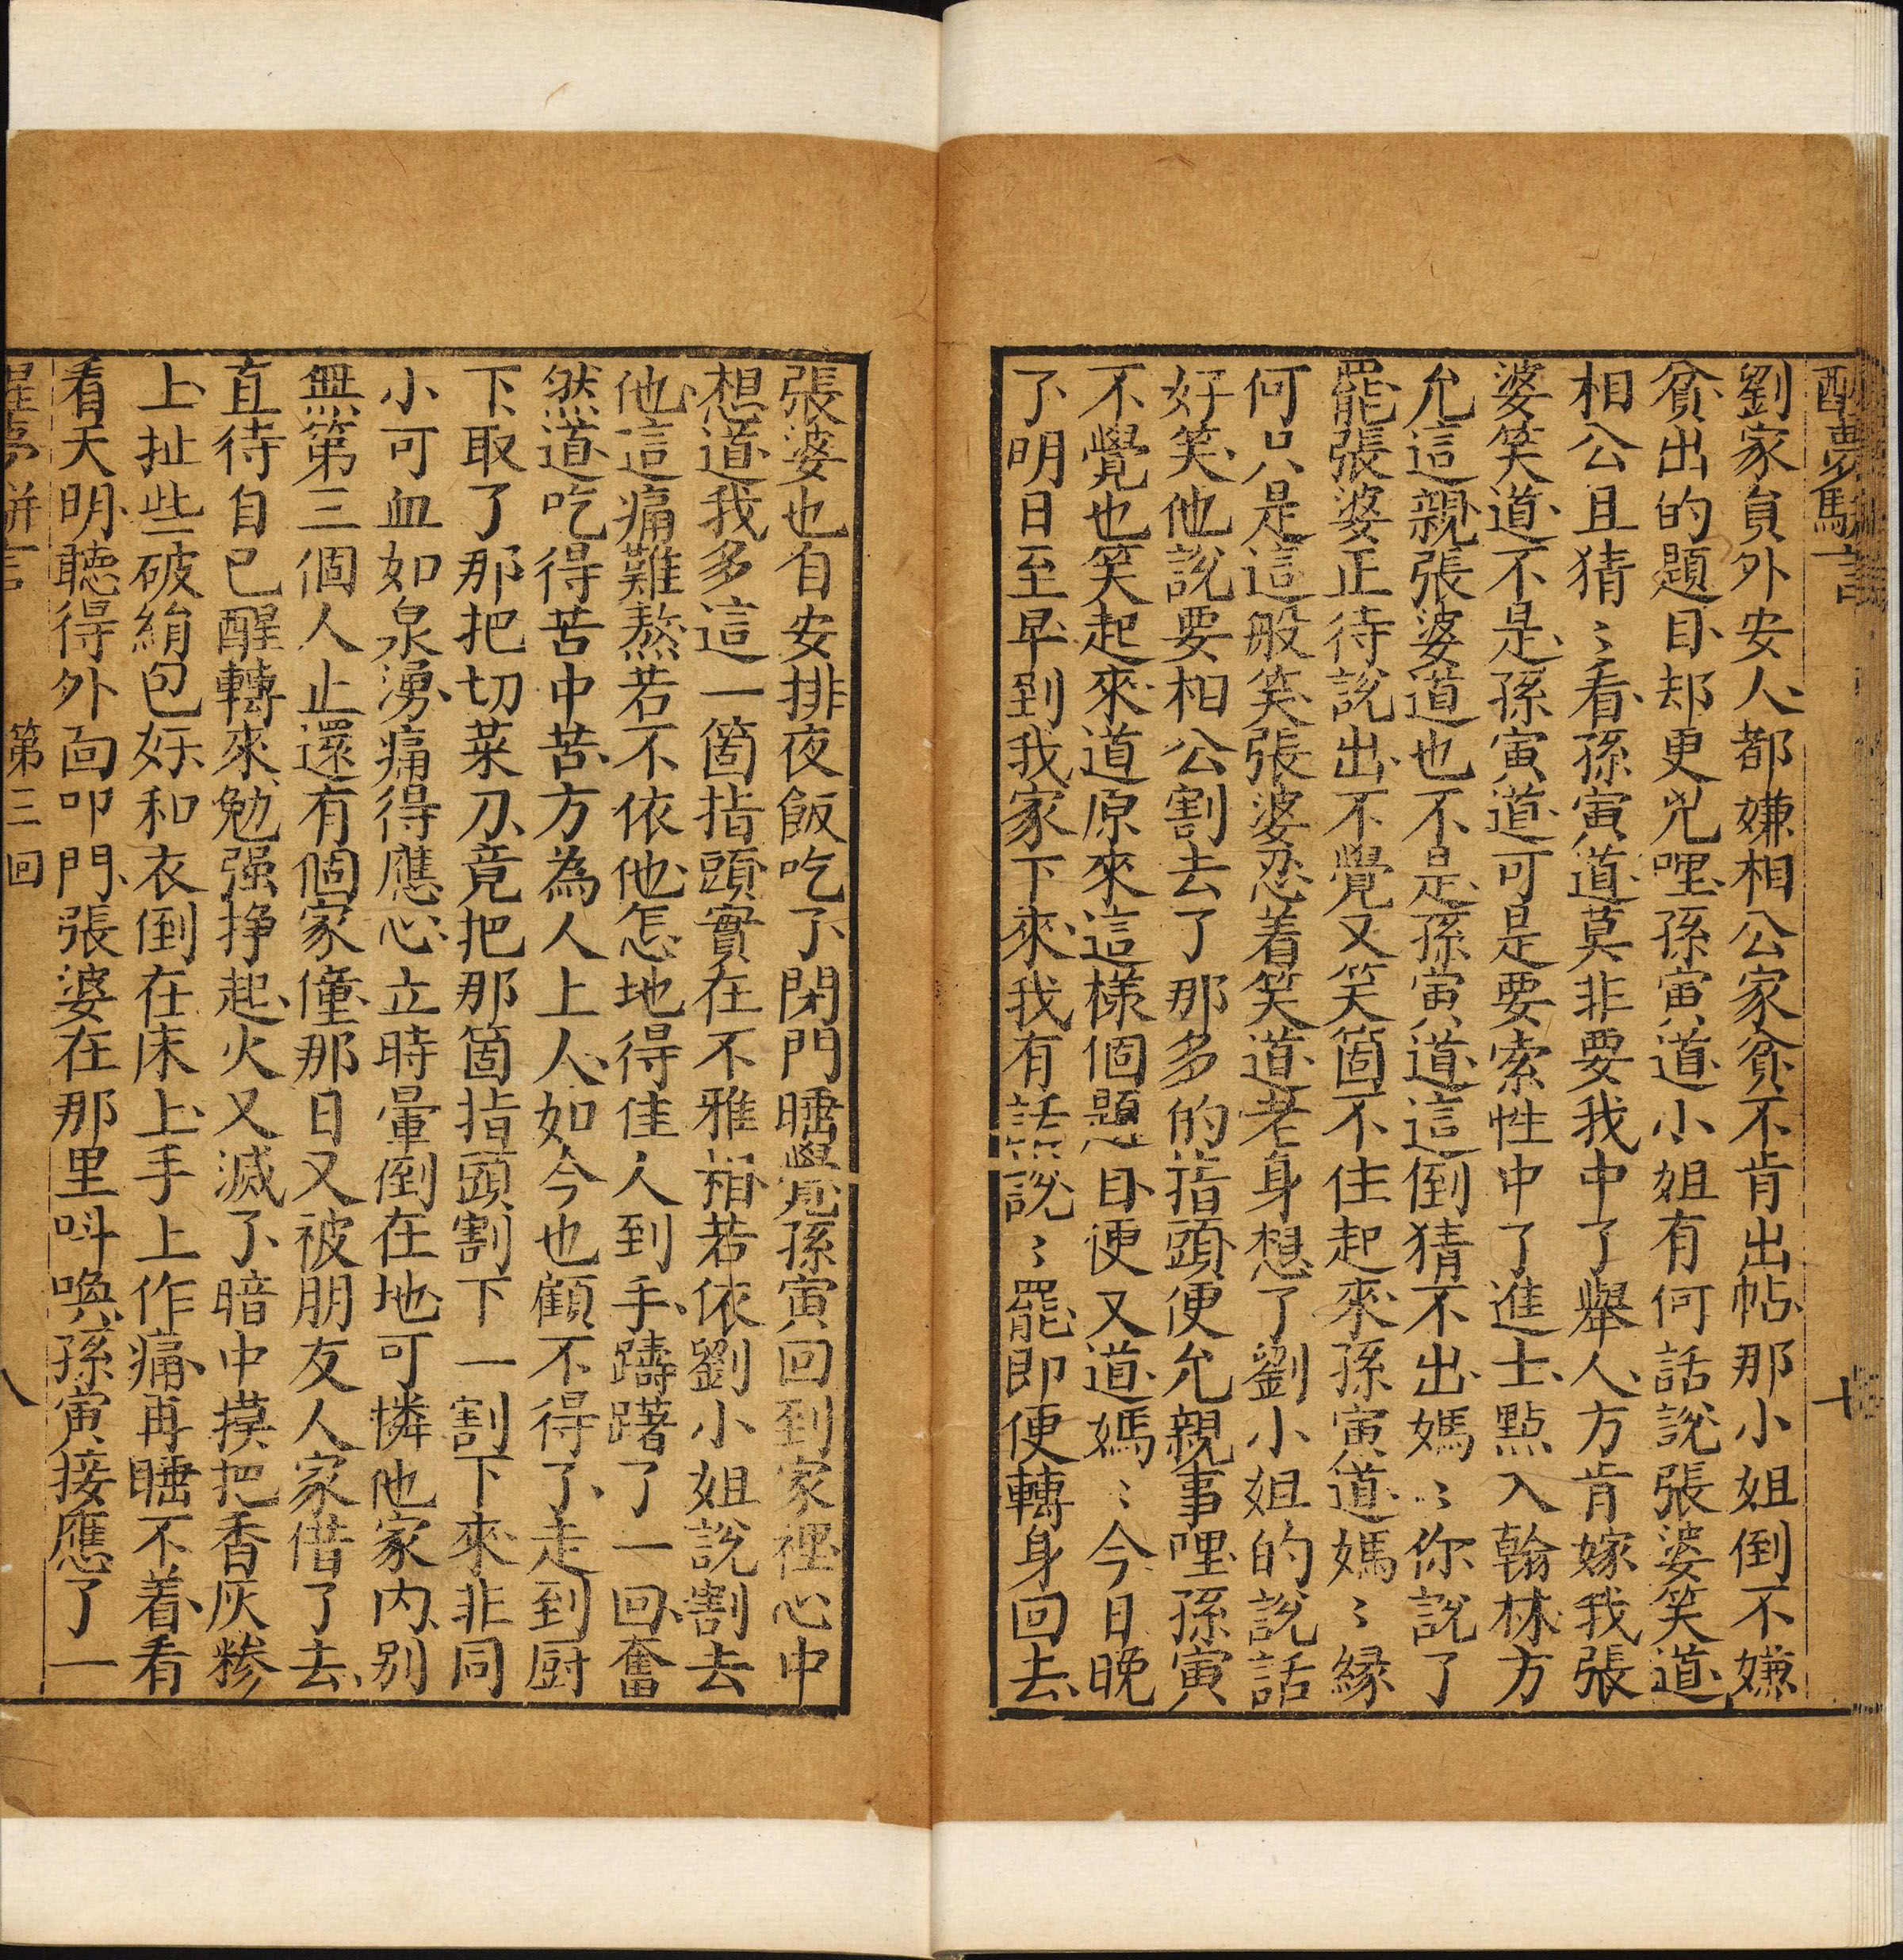 醒夢駢言
劉家員外安人、都嫌相公家貧、不肯出帖、那小姐倒不嫌
貧、出的題目、却更兇哩、孫寅道、小姐有何話說、張婆笑道、
相公且猜〻看、孫寅道、莫非要我中了舉人、方肯嫁我、張
婆笑道、不是、孫寅道、可是要索性中了進士、點入翰林、方
允這親、張婆道、也不是、孫寅道、這倒猜不出、媽〻、你說了
罷、張婆正待說出、不覺又笑箇不住起來、孫寅道、媽〻、緣
何只是這般笑、張婆忍着笑道、老身想了劉小姐的說話
好笑、他說要相公割去了那多的指頭、便允親事哩、孫寅
不覺也笑起來、道原來這樣個題目、便又道、媽〻、今日晚
了、明日至早、到我家下來、我有話說〻罷、即便轉身回去、
張婆也自安排夜飯吃了、閉門睡覺、孫寅回到家裡、心中
想道、我多這一箇指頭、實在不雅相、若依劉小姐說割去
他、這痛難熬、若不依他、怎地得佳人到手、躊躇了一回、奮
然道、吃得苦中苦、方為人上人、如今也顧不得了、走到厨
下、取了那把切菜刀、竟把那箇指頭割下、一割下來、非同
小可、血如泉湧、痛得應心、立時暈倒在地、可憐他家内、别
無第三個人、止還有個家僮、那日又被朋友人家借了去、
直待自己醒轉來、勉强挣起、火又滅了、暗中摸把香灰糝
上、扯些破絹包好、和衣倒在床上、手上作痛、再睡不着、看
看天明、聽得外面叩門、張婆在那里呌喚、孫寅接應了一
醒夢駢言 第三回 八